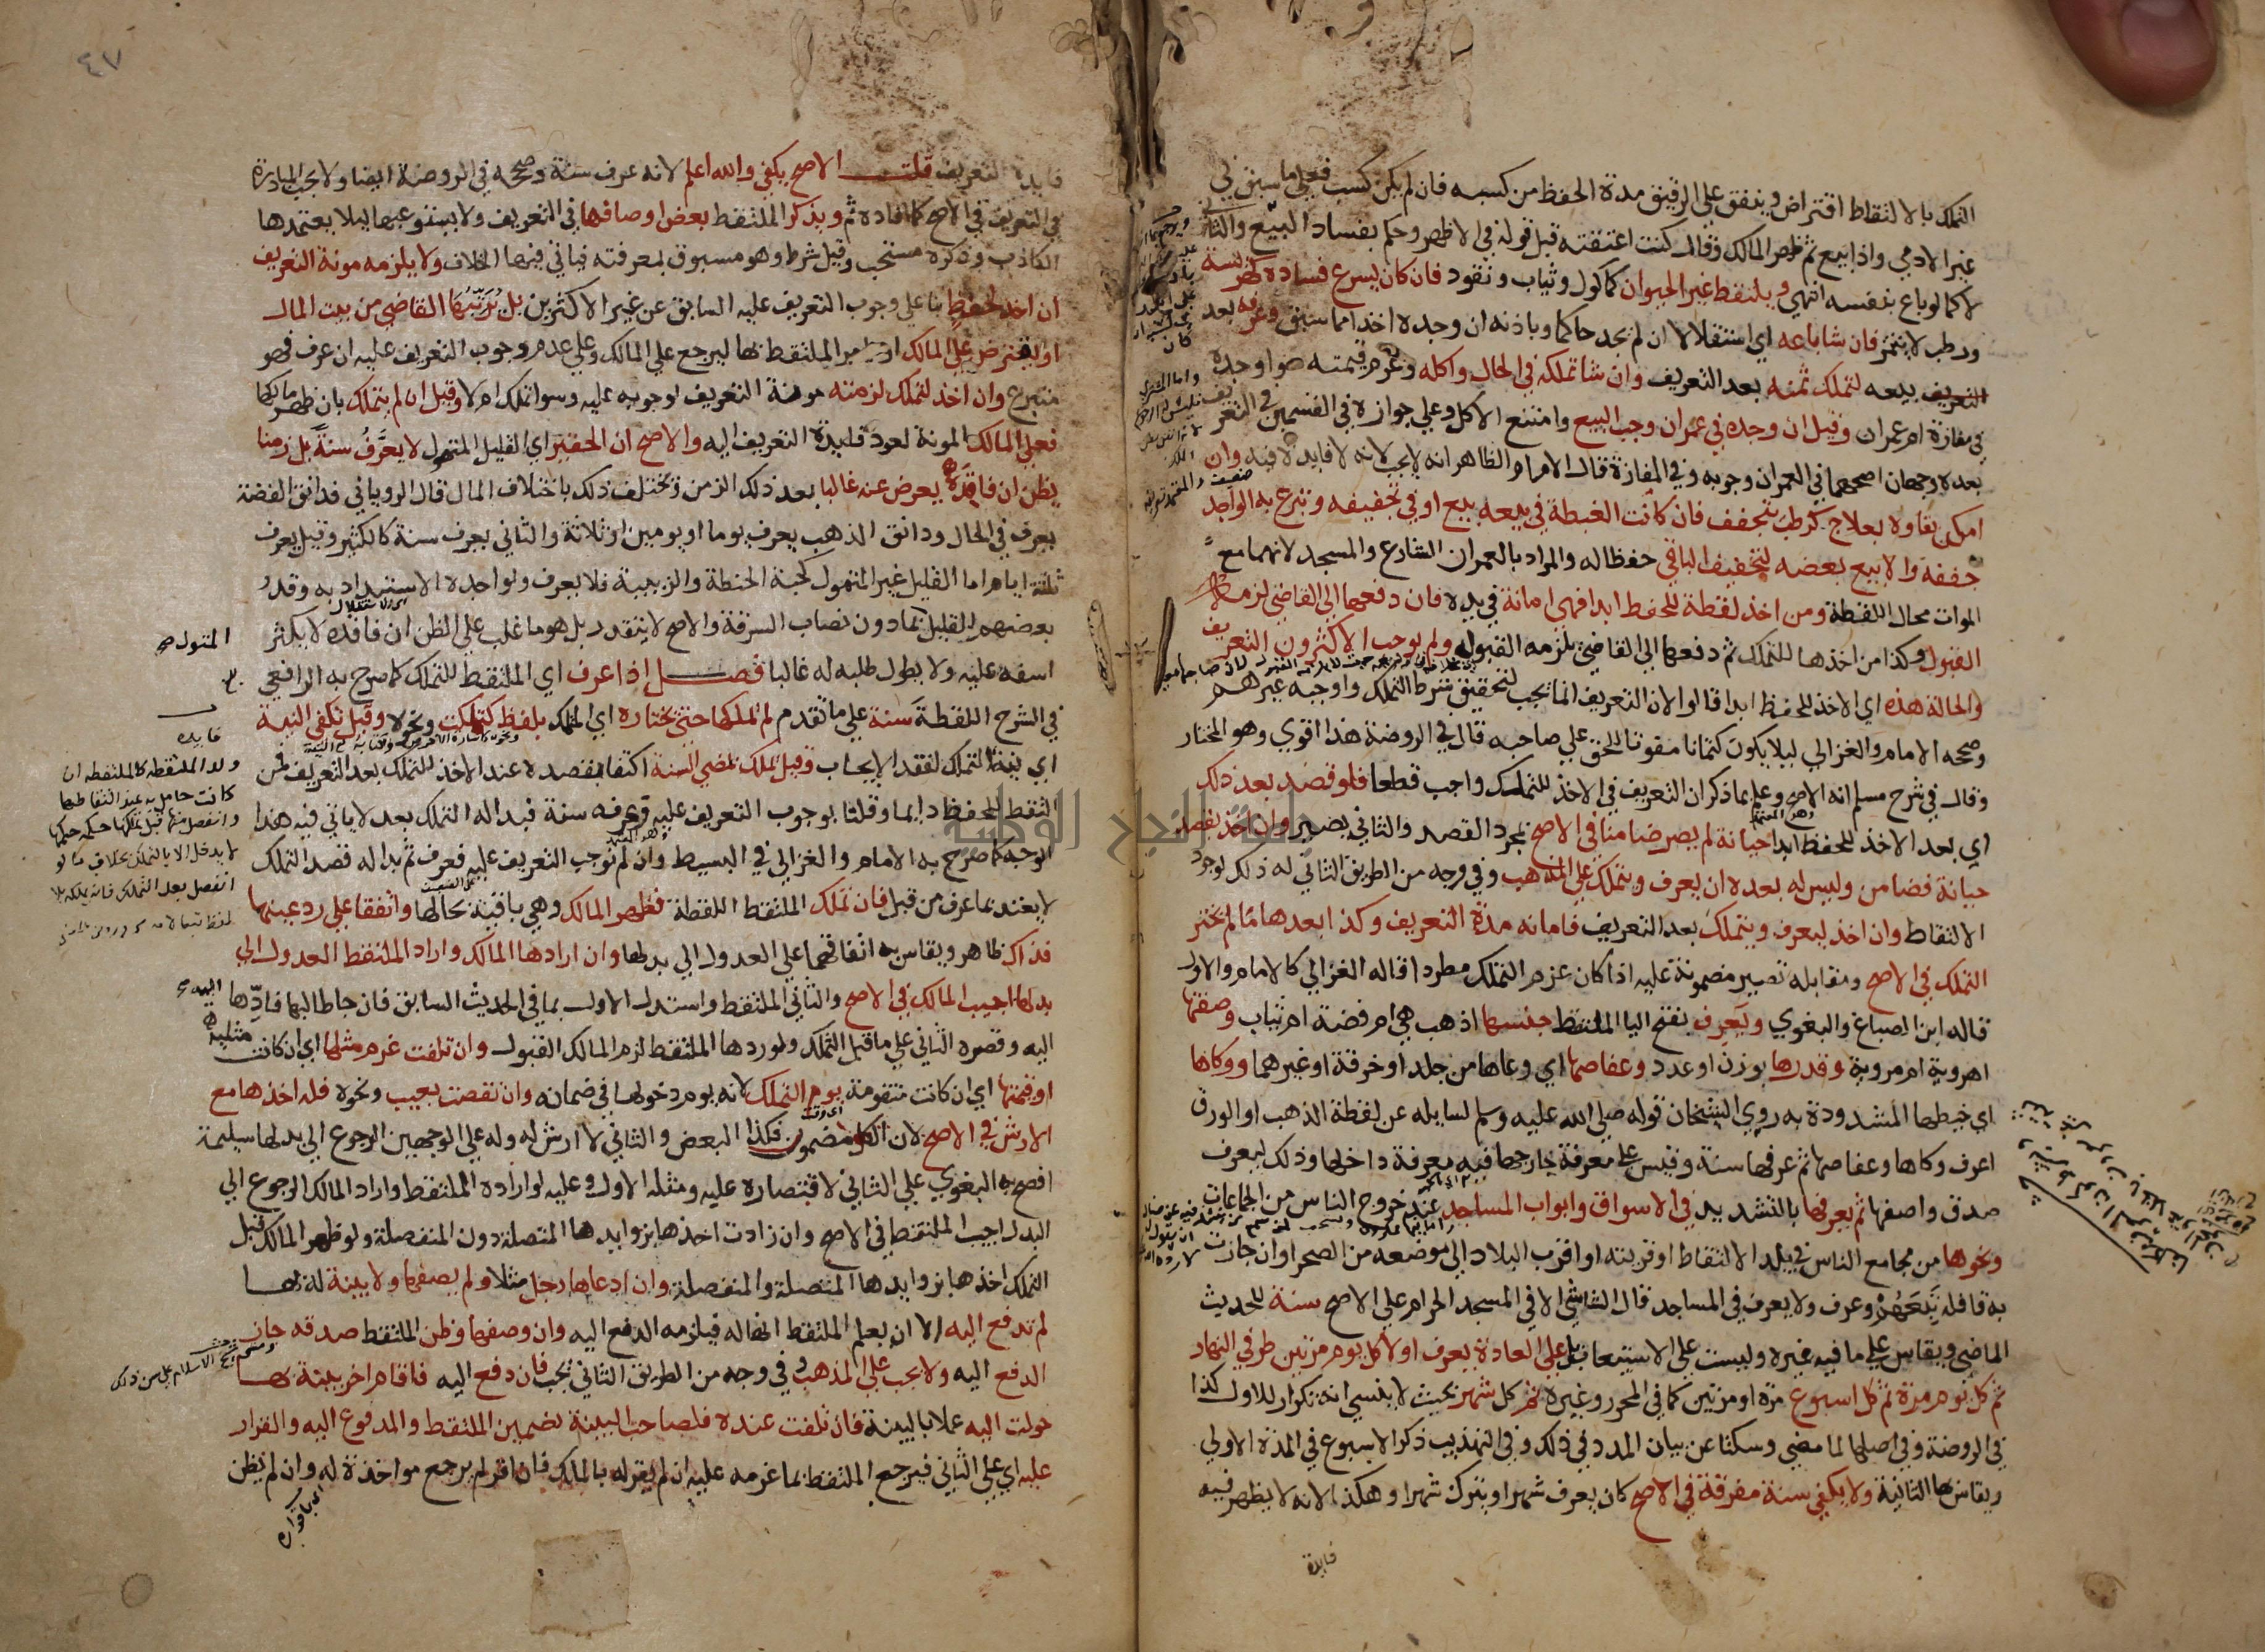 التملك بالالتقاط اقتراض وينفق علي الرقيق مدة الحفظ من كسبه فان لم يكن كسب فعلي ما سبق في
غير الادمي واذا بيع ثم ظهر المالك وقال كنت اعتقته قبل قوله في الاظهر وحكم بفساد البيع والثاني
لا كما لو باع بنفسه انتهي ويلتقط غير الحيوان كماكول وثياب ونقود فان كان يسرع فساده كهريسة
ورطب لا يتتمر فان شا باعه اي استقلالا ان لم يجد حاكما وباذنه ان وجده اخذا مما سبق وعرفه بعد
التعريف بيعه لتملك ثمنه بعد التعريف وان شا تملكه في الحال واكله وغرم قيمته سوا وجده
في مفازة ام عمران وقيل ان وجده في عمران وجب البيع وامتنع الاكل وعلي جوازه في القسمين في التعريف
بعده وجهان اصحهما في العمران وجوبه وفي المفازة قال الامام والظاهر انه لا يجب لانه لا فايدة فيه وان
امكن بقاوه بعلاج كرطب يتجفف فان كانت الغبطة في بيعه بيع او في تجفيفه وتبرع به الواجد
جففه والا بيع بعضه لتجفيف الباقي حفظا له والمراد بالعمران الشارع والمسجد لانهما مع
الموات محال اللقطة ومن اخذ لقطة للحفظ ابدا فهي امانة في يده فان دفعها الي القاضي لزمه
القبول وكذا من اخذها للتملك ثم دفعها الي القاضي يلزمه القبول ولم يوجب الاكثرون التعريف
والحالة هذه اي الاخذ للحفظ ابدا قالوا لان التعريف انما يجب لتحقيق شرط التملك واوجبه غيرهم
وصححه الامام والغزالي ليلا يكون كتمانا مفوتا للحق علي صاحبه قال في الروضة هذا اقوي وهو المختار
وقال في شرح مسلم انه الاصح وعلم بما ذكر ان التعريف في الاخذ للتملك واجب قطعا فلو قصد بعد ذلك
اي بعد الاخذ للحفظ ابدا خيانة لم يصر ضامنا في الاصح بمجرد القصد والثاني يصير وان اخذ بقصد
خيانة فضامن وليس له بعده ان يعرف ويتملك علي المذهب وفي وجه من الطريق الثاني له ذلك لوجود
الالتقاط وان اخذ ليعرف ويتملك بعد التعريف فامانة مدة التعريف وكذا بعدها ما لم يختر
التملك في الاصح ومقابله تصير مضمونة عليه اذا كان عزم التملك مطردا قاله الغزالي كالامام والاول
قاله ابن الصباغ والبغوي ويعرف بفتح اليا الملتقط جنسها اذهب هي ام فضة ام ثياب وصفتها
اهروية ام مروية وقدرها بوزن او عدد وعفاصها اي وعاها من جلد او خرقة او غيرهما ووكاها
اي خيطها المشدودة به روي الشيخان قوله صلي الله عليه وسلم لسايله عن لقطة الذهب او الورق
اعرف وكاها وعفاصها ثم عرفها سنة وقيس علي معرفة خارجها فيه معرفة داخلها وذلك ليعرف
صدق واصفها ثم يعرفها بالتشديد في الاسواق وابواب المساجد عند خروج الناس من الجماعات
ونحوها من مجامع الناس في بلد الالتقاط او قريته او اقرب البلاد الي موضعه من الصحرا وان جازت
به قافلة تبعهم وعرف ولا يعرف في المساجد قال الشاشي الا في المسجد الحرام علي الاصح سنة للحديث
الماضي ويقاس علي ما فيه غيره وليست علي الاستيعاب بل علي العادة يعرف اولا كل يوم مرتين طرفي النهار
ثم كل يوم مرة ثم كل اسبوع مرة او مرتين كما في المحرر وغيره ثم كل شهر بحيث لا ينسي انه تكرار للاول كذا
في الروضة وفي اصلها لما مضي وسكتا عن بيان المدد في ذلك وفي التهذيب ذكر الاسبوع في المدة الاولي
ويقاس بها الثانية ولا يكفي سنة مفرقة في الاصح كان يعرف شهرا ويترك شهرا وهكذا لانه لا يظهر فيه
فايدة
٤٧
فايدة التعريف قلت الاصح يكفي والله اعلم لانه عرف سنة وصححه في الروضة ايضا ولا يجب المبادرة
في التعريف في الاصح كما افاده ثم ويذكر الملتقط بعض اوصافها في التعريف ولا يستوعبها ليلا يعتمدها
الكاذب وذكره مستحب وقيل شرط وهو مسبوق بمعرفته فياتي فيها الخلاف ولا يلزمه مونة التعريف
ان اخذ لحفظ بنا علي وجوب التعريف عليه السابق عن غير الاكثرين بل يرتبها القاضي من بيت المال
او يقترض علي المالك او يامر الملتقط بها ليرجع علي المالك وعلي عدم وجوب التعريف عليه ان عرف فهو
متبرع وان اخذ لتملك لزمته مونة التعريف لوجوبه عليه وسوا تملك ام لا وقيل ان لم يتملك بان ظهر مالكها
فعلي المالك المونة لعود فايدة التعريف اليه والاصح ان الحقير اي القليل المتمول لا يعرف سنة بل زمنا
يظن ان فاقده يعرض عنه غالبا بعد ذلك الزمن ويختلف ذلك باختلاف المال قال الروياني فدانق الفضة
يعرف في الحال ودانق الذهب يعرف يوما او يومين او ثلاثة والثاني يعرف سنة كالكثير وقيل يعرف
ثلثة ايام اما القليل غير المتمول كحبة الحنطة والزبيبة فلا يعرف ولواجده الاستبداد به وقدر
بعضهم القليل بما دون نصاب السرقة والاصح لا يتقدر بل هو ما غلب علي الظن ان فاقده لا يكثر
اسفه عليه ولا يطول طلبه له غالبا فصل اذا عرف اي الملتقط للتملك كما صرح به الرافعي
في الشرح اللقطة سنة علي ما تقدم لم تملكها حتي يختاره اي التملك بلفظ كتملكت ونحوه وقيل تكفي النية
اي نية التملك لفقد الايجاب وقيل تملك بمضي السنة اكتفا بقصده عند الاخذ للتملك بعد التعريف فمن
التقط للحفظ دايما وقلنا بوجوب التعريف عليه وعرفه سنة فبدا له التملك بعد لا ياتي فيه هذا
الوجه كما صرح به الامام والغزالي في البسيط وان لم نوجب التعريف عليه فعرف ثم بدا له قصد التملك
لا يعتد بما عرف من قبل فان تملك الملتقط اللقطة فظهر المالك وهي باقية بحالها واتفقا علي رد عينها
فذاك ظاهر ويقاس به اتفاقهما علي العدول الي بدلها وان ارادها المالك واراد الملتقط العدول الي
بدلها اجيب المالك في الاصح والثاني الملتقط واستدل الاول بما في الحديث السابق فان جا طالبها فادها
اليه وقصره الثاني علي ما قبل التملك ولو ردها الملتقط لزم المالك القبول وان تلفت غرم مثلها اي ان كانت مثلية
او قيمتها اي ان كانت متقومة يوم التملك لانه يوم دخولها في ضمانه وان نقصت بعيب ونحوه فله اخذها مع
الارش في الاصح لان الكل مضمون فكذا البعض والثاني لا ارش له وله علي الوجهين الرجوع الي بدلها سليمة
افصح به البغوي علي الثاني لاقتصاره عليه ومثله الاول وعليه لو اراده الملتقط واراد المالك الرجوع الي
البدل اجيب الملتقط في الاصح وان زادت اخذها بزوايدها المتصلة دون المنفصلة ولو ظهر المالك قبل
التملك اخذها بزوايدها المتصلة والمنفصلة وان ادعاها رجل مثلا ولم يصفها ولا بينة له بها
لم تدفع اليه الا ان يعلم الملتقط انها له فيلزمه الدفع اليه وان وصفها وظن الملتقط صدقه جاز
الدفع اليه ولا يجب علي المذهب وفي وجه من الطريق الثاني يجب فان دفع اليه فاقام اخر بينة بها
حولت اليه عملا بالبينة فان تلفت عنده فلصاحب البينة تضمين الملتقط والمدفوع اليه والقرار
عليه اي علي الثاني فيرجع الملتقط بما غرمه عليه ان لم يقر له بالملك فان اقر لم يرجع مواخذة له وان لم يظن
فايده
ولد الملتقطه كالملتقطه ان
كانت حامل به عند التقاطها
وانفصل منها قبل تملكها حكمه حكمها
لا يدخل الا بالتملك بخلاف ما لو
انفصل بعد التملك فانه يملكه بلا
لفظ تبعا لامه
جامعة النجاح الوطنية